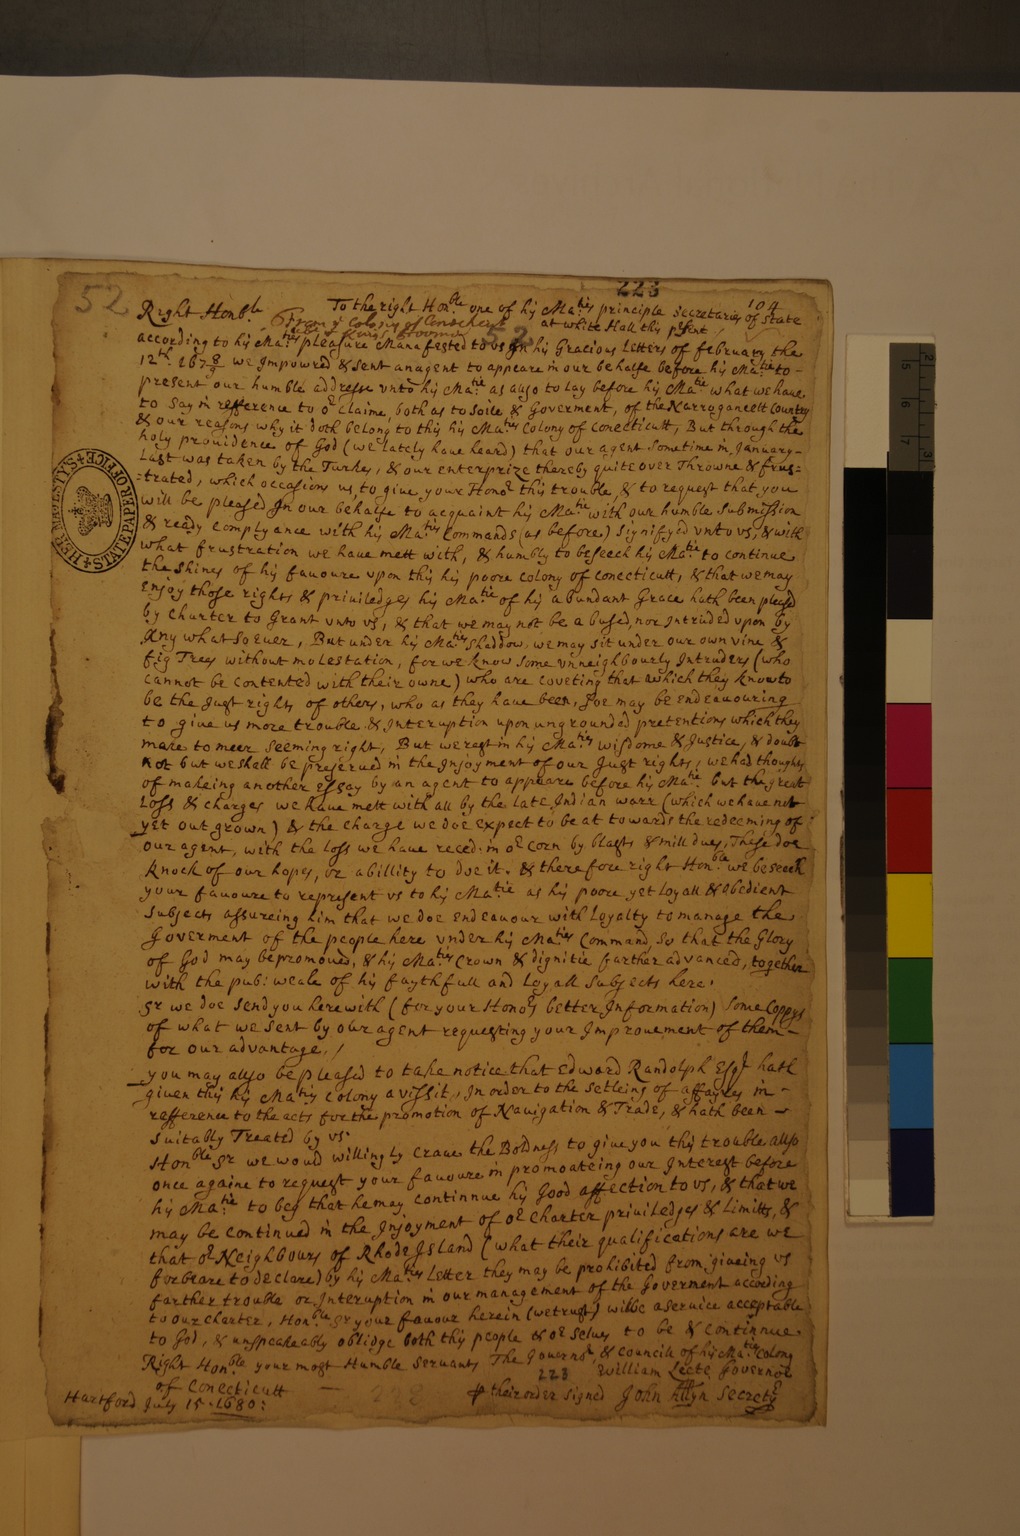 52
223
104
Right Hon:ble To the right Hon:ble one of his Ma:ties principle secretaries of State
at white Hall this psent /
From ye Colony of Conecticut
52
according to his Ma:ties pleasure Manafested to vs In his Gracious Letters of february the
12th: 167 8/9 we Impowred & sent an agent to appeare in our behalfe before his Ma:tie to -
present our humble addresse vnto his Ma:tie as also to lay before his Ma:tie what we have
to say in refference to or claime, both as to soile & Goverment, of the Narrogancett Country
& our reasons why it doth belong to this his Ma:ties Colony of Conecticutt, But through the
holy providence of God (we lately have heard) that our agent sometime in January -
Last was taken by the Turkes, & our enterprize thereby quite over Throwne & frus=
=trated, which occasions us, to give your Honor this trouble, & to request that you
will be pleased In our behalfe to acquaint his Ma:tie with our humble submission
& ready complyance with his Ma:ties Commands (as before) signifyed vnto vs, & with
what frustration we haue mett with, & humbly to beseech his Ma:tie to continue
the shines of his fauoure vpon this his poore colony of Conecticutt, & that we may
Enjoy those rights & priuiledges his Ma:tie of his abundant Grace hath been pleasd
by Charter to Grant vnto vs, & that we may not be abused, nor Intruded vpon by
Any whatsoeuer, But under his Ma:ties shaddow, we may sit under our own vine &
fig Trees without molestation, for we know some vnneighbourly Intruders (who
cannot be contented with their owne) who are coveting that which they know to
be the Just rights of others, who as they have been, soe may be endeauouring
to giue us more trouble & Interuption upon ungrounded pretentions which they
make to meer seeming right, But we rest in his Ma:ties wisdome & Justice, & doubt
not but we shall be preserued in the Injoyment of our Just rights, we had thoughts
of makeing another essay by an agent to appeare before his Ma:tie but the great
Loss & charges we have mett with all by the late Indian warr (which we haue not
yet out grown) & the charge we doe expect to be at towards the redeeming of
our agent, with the loss we have reced: in or corn by blasts & milldues, These doe
knock of our hopes, or abillity to doe it. & therefore right Hon:ble we beseech
your fauoure to represent vs to his Ma:tie as his poore yet loyall & obedient
Subjects assureing him that we doe endeauour with Loyalty to manage the
Goverment of the people here vnder his Ma:ties Command, so that the Glory
of God may be promoued, & his Ma:ties Crown & dignitie farther advanced, together
with the pub: weale of his faythfull and Loyall subjects here:
Sr we doe send you herewith (for your Honors better Information) some Coppys
of what we sent by our agent requesting your Improuement of them -
for our advantage, /
you may allso be pleased to take notice that Edward Randolph Esqr hath
given this his Ma:ties colony a vissit, In order to the setleing of affayres in -
refference to the acts for the promotion of Navigation & Trade, & hath been -
suitably Treated by vs.
Hon:ble Sr we woud willingly craue the Boldness to give you this trouble allso
once againe to request your fauoure in promoateing our Interest before
his Ma:tie to beg that he may continnue his Good affection to vs, & that we
may be continued in the Injoyment of or Charter priuiledges & Limitts, &
that or Neighbours of Rhode Island (what their qualifications are we
forbeare to declare) by his Ma:ties Letter they may be prohibited from giueing vs
farther trouble or Interuption in our management of the Goverment according
to our charter, Hon:ble Sr your fauour herein (we trust) wilbe a seruice acceptable
to God, & unspeakeably oblidge both this people & or selues to be & continnue
Right Hon:ble your most Humble seruants The Gouernor & Councill of his Ma:ties Colony
of Conecticutt — 223 William Leete Gouernor
p their order signed John Allyn Secrety
Hartford July 15 . 1680:
HER MAJESTY'S STATE PAPER OFFICE